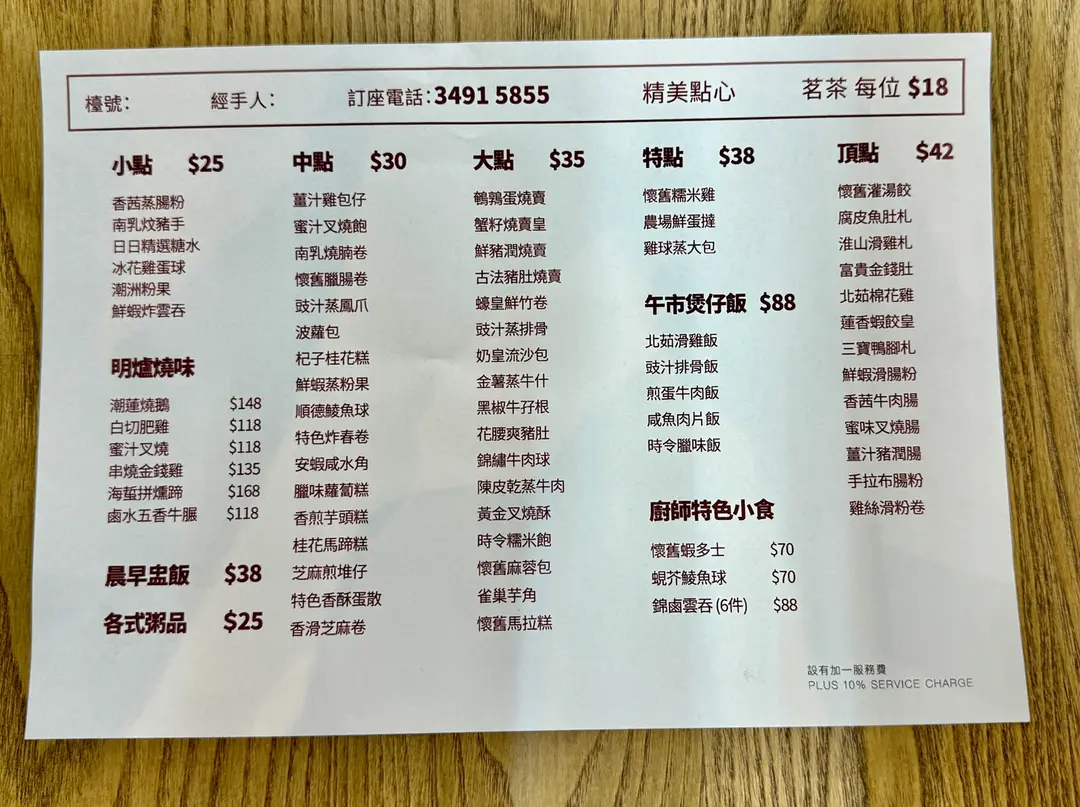 檯號:
經手人:
訂座電話:3491 5855
精美點心
茗茶 每位 $18
小點 $25
香茜蒸腸粉
南乳炆豬手
日日精選糖水
冰花雞蛋球
潮洲粉果
鮮蝦炸雲吞
明爐燒味
潮蓮燒鵝 $148
白切肥雞 $118
蜜汁叉燒 $118
串燒金錢雞 $135
海蜇拼燻蹄 $168
鹵水五香牛𦟌 $118
晨早盅飯 $38
各式粥品 $25
中點 $30
薑汁雞包仔
蜜汁叉燒飽
南乳燒腩卷
懷舊臘腸卷
豉汁蒸鳳爪
波蘿包
杞子桂花糕
鮮蝦蒸粉果
順德鯪魚球
特色炸春卷
安蝦咸水角
臘味蘿蔔糕
香煎芋頭糕
桂花馬蹄糕
芝麻煎堆仔
特色香酥蛋散
香滑芝麻卷
大點 $35
鵪鶉蛋燒賣
蟹籽燒賣皇
鮮豬潤燒賣
古法豬肚燒賣
蠔皇鮮竹卷
豉汁蒸排骨
奶皇流沙包
金薯蒸牛什
黑椒牛孖根
花腰爽豬肚
錦繡牛肉球
陳皮乾蒸牛肉
黃金叉燒酥
時令糯米飽
懷舊麻蓉包
雀巢芋角
懷舊馬拉糕
特點 $38
懷舊糯米雞
農場鮮蛋撻
雞球蒸大包
午市煲仔飯 $88
北菇滑雞飯
豉汁排骨飯
煎蛋牛肉飯
咸魚肉片飯
時令臘味飯
廚師特色小食
懷舊蝦多士 $70
蜆芥鯪魚球 $70
錦鹵雲吞 (6件) $88
頂點 $42
懷舊灌湯餃
腐皮魚肚札
淮山滑雞札
富貴金錢肚
北菇棉花雞
蓮香蝦餃皇
三寶鴨腳札
鮮蝦滑腸粉
香茜牛肉腸
蜜味叉燒腸
薑汁豬潤腸
手拉布腸粉
雞絲滑粉卷
設有加一服務費
PLUS 10% SERVICE CHARGE